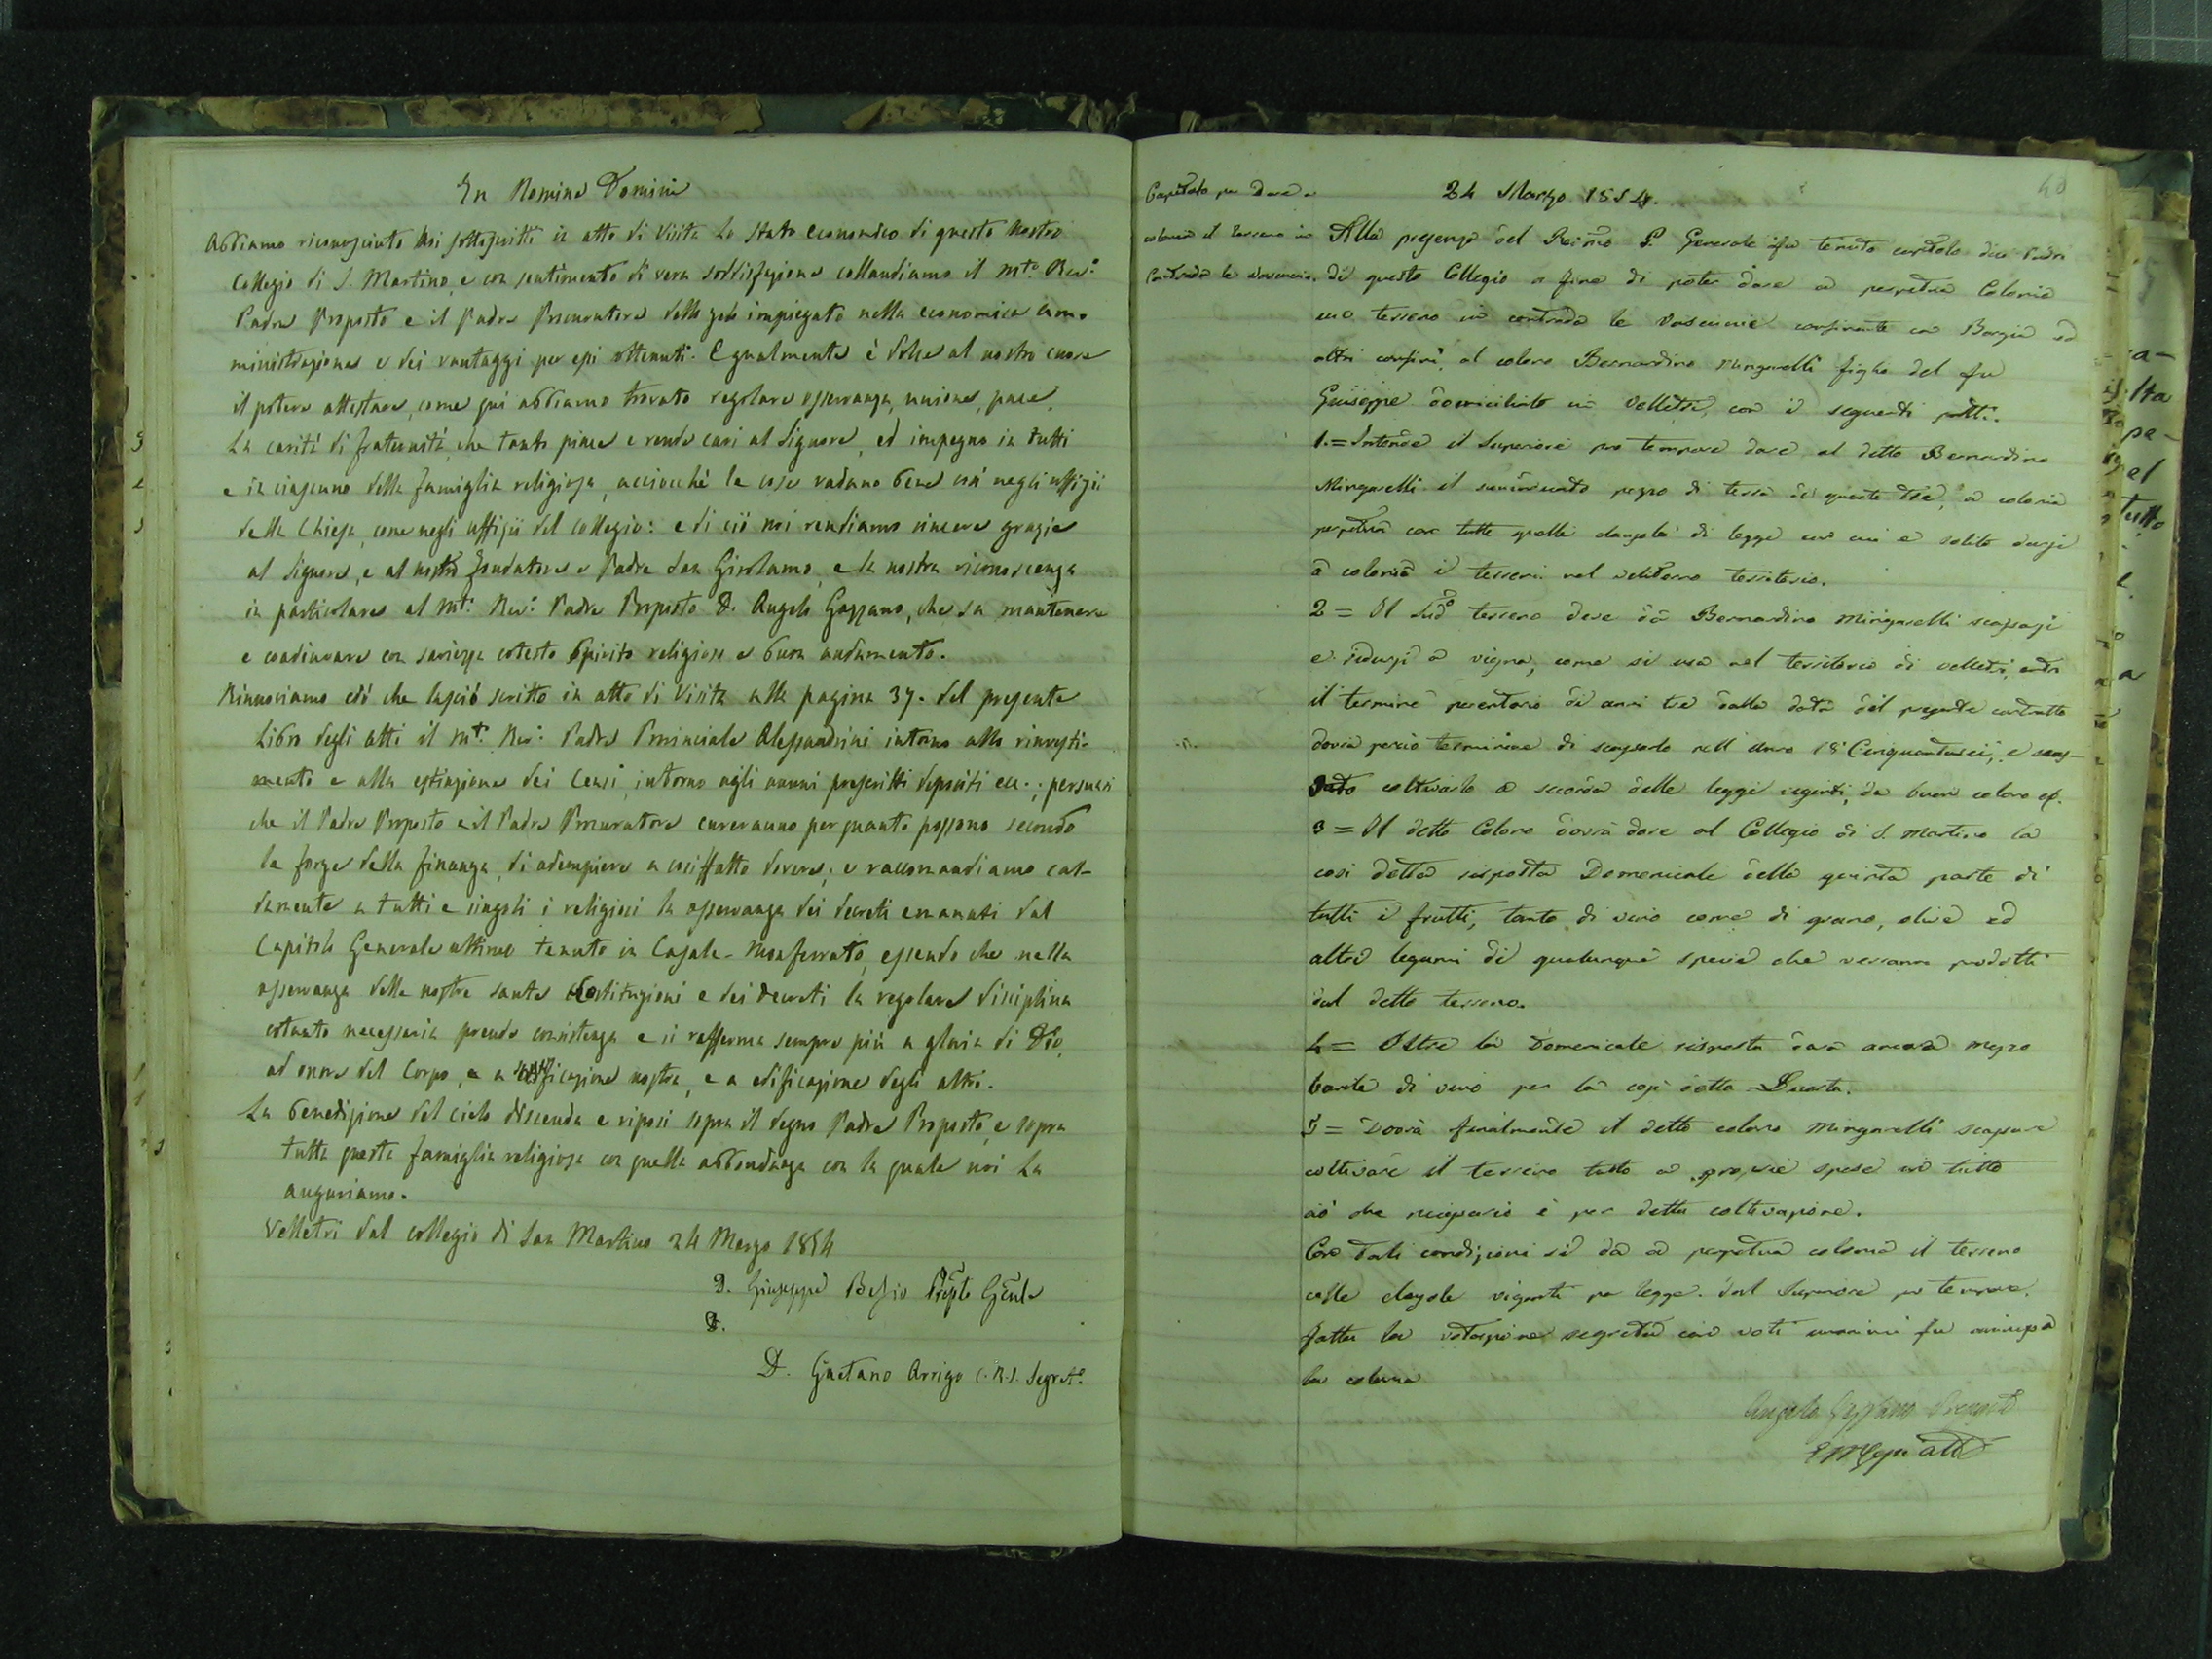 In Nomine Domini
Abbiamo riconosciuto Noi sottoscritti in atto di Visita lo stato economico di questo nostro
Collegio di S. Martino, e con sentimento di vera soddisfazione collaudiamo il M.to Rev.o
Padre Preposto e il Padre Procuratore dello zelo impiegato nella economica am-
ministrazione e dei vantaggi per essi ottenuti. Egualmente è dolce al nostro cuore
il potere attestare, come qui abbiamo trovato regolare osservanza, unione, pace,
la carità di fraternità, che tanto piace e rende cari al Signore, ed impegno in tutti
e in ciascuno della famiglia religiosa, acciocchè le cose vadano bene così negli uffizii
della Chiesa, come negli uffizii del collegio: e di ciò noi rendiamo sincere grazie
al Signore, e al nostro Fondatore e Padre San Girolamo, e la nostra riconoscenza
in particolare al M.to Rev.o Padre Preposto D. Angelo Gazzano, che sa mantenere
e coadiuvare con saviezza cotesto spirito religioso e buon andamento.
Rinnoviamo ciò che lasciò scritto in atto di Visita alla pagina 37. del presente
Libro degli Atti il M.to Rev.o Padre Provinciale Alessandrini intorno allo rinvesti-
mento e alla estinzione dei Censi, intorno agli annui prescritti depositi ecc.; persuasi
che il Padre Preposto e il Padre Procuratore cureranno per quanto possono secondo
le forze della finanza, di adempiere a cosiffatto dovere; e raccomandiamo cal-
damente a tutti e singoli i religiosi la osservanza dei decreti emanati dal
Capitolo Generale ultimo tenuto in Casale-Monferrato, essendo che nella
osservanza delle nostre sante Costituzioni e dei decreti la regolare disciplina
cotanto necessaria prende consistenza e si rafferma sempre più a gloria di Dio,
ad onore del Corpo, e a nostra, e a edificazione degli altri.
La benedizione del cielo discenda e riposi sopra il degno Padre Preposto, e sopra
tutta questa famiglia religiosa con quella abbondanza con la quale noi la
auguriamo.
Velletri dal collegio di San Martino 24 Marzo 1854
D. Giuseppe Besio Prepto Genle
D.
D. Gaetano Arrigo C.R.S. Segret.o
40
Capitolo per dare a
colonia il terreno in
Contrada le
24 Marzo 1854.
Alla presenza del Rmo P. Generale fu tenuto capitolo dai Padri
di questo Collegio a fine di poter dare a perpetua Colonia
uno terreno in contrada le confinante con Borgia ed
altri confini, al colono Bernardino Mingarelli figlio del fu
Giuseppe domiciliato in Velletri, con i seguenti patti.
1. = Intende il Superiore pro tempore dare al detto Bernardino
Mingarelli il pezzo di terra di a colonia
perpetua con tutte quelle clausole di legge con cui è solito darsi
a colonia i terreni nel veliterno territorio.
2 = Il Sud.o terreno deve da Bernardino Mingarelli scassarsi
e ridursi a vigna, come si usa nel territorio di Velletri, entro
il termine perentorio di anni tre dalla data del presente contratto
dovrà perciò terminare di scassarlo nell'anno 18 Cinquantasei, e scas-
sato coltivarlo a seconda delle leggi vigenti, da buon colono
3 = Il detto Colono dovrà dare al Collegio di S. Martino la
così detta risposta Domenicale della quinta parte di
tutti i frutti, tanto di vino come di grano, olive ed
altri legumi di qualunque specie che verranno prodotti
dal detto terreno.
4 = Oltre la Domenicale risposta darà ancora mezzo
barile di vino per la così detta
5 = Dovrà finalmente il detto colono Mingarelli scassare
coltivare il terreno tutto a proprie spese in tutto
ciò che necessario è per detta coltivazione.
Con tali condizioni si dà a perpetua colonia il terreno
colle clausole vigenti per legge. dal Superiore pro tempore.
Fatta la votazione segreta con voti unanimi fu ammessa
la colonia
Angelo Gazzano Preposto